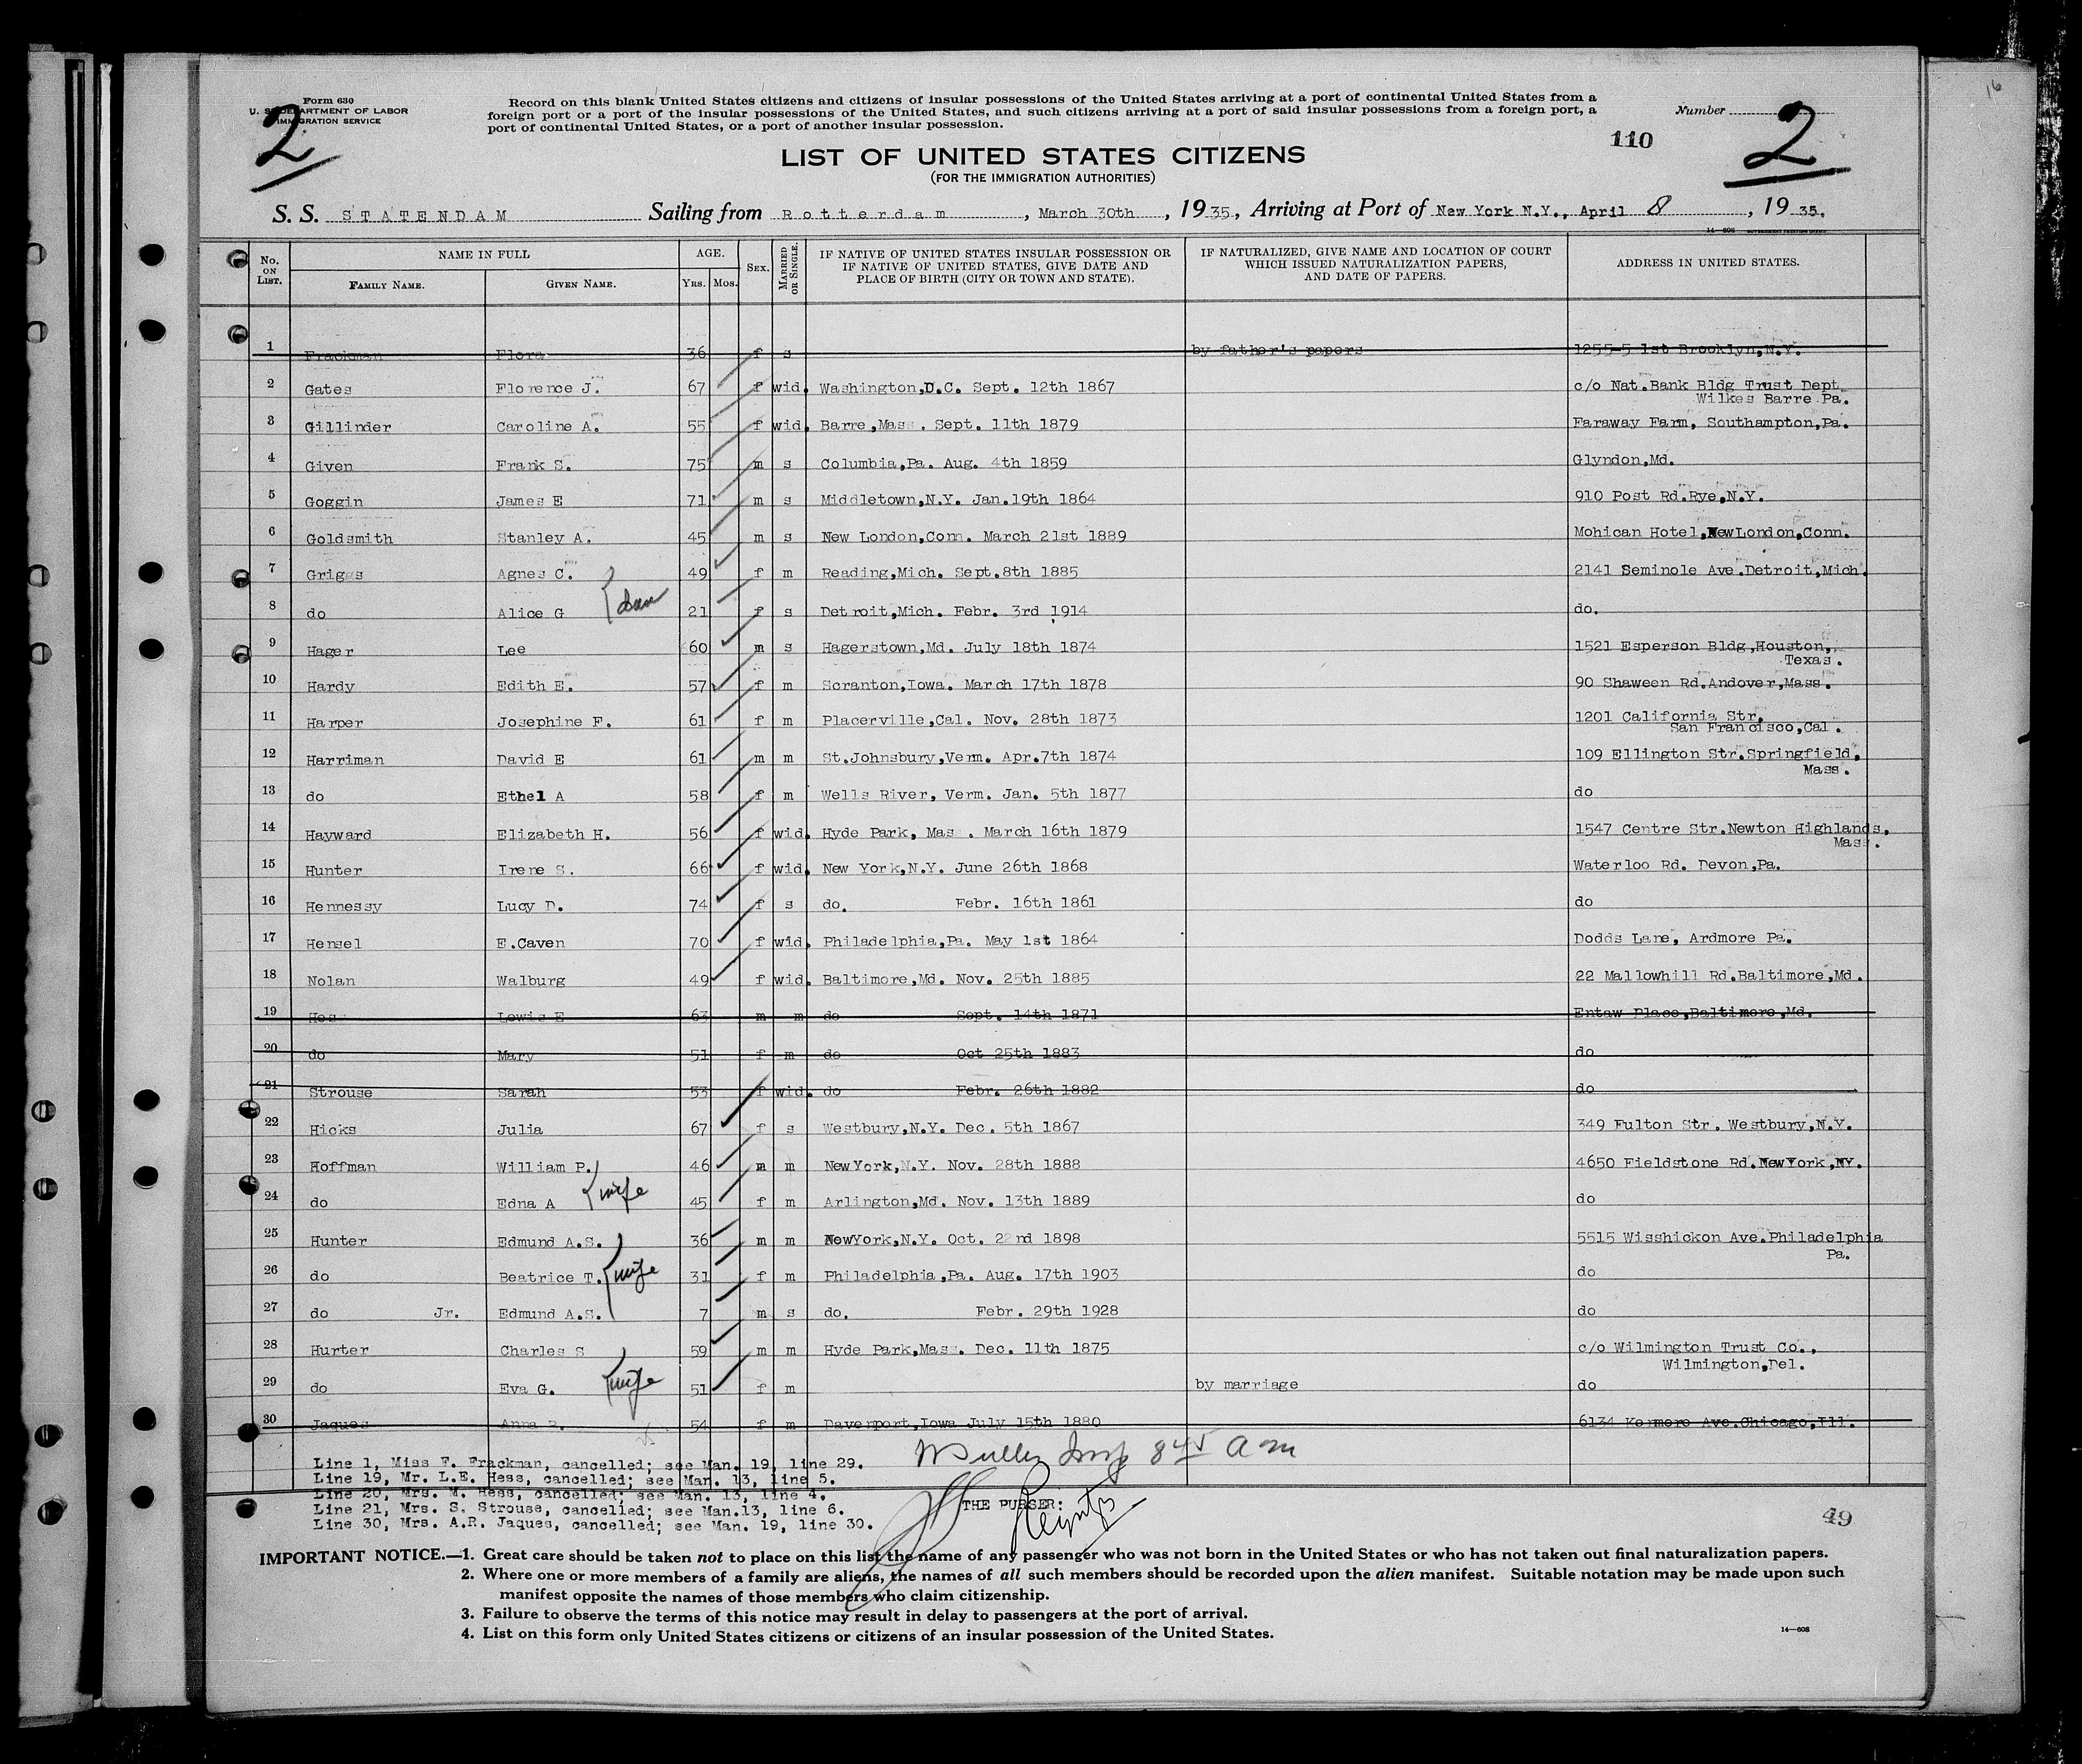 16
Form 630
U. S. DEPARTMENT OF LABOR
IMMIGRATION SERVICE
2
Record on this blank United States citizens and citizens of insular possessions of the United States arriving at a port of continental United States from a
foreign port or a port of the insular possessions of the United States, and such citizens arriving at a port of said insular possessions from a foreign port, a
port of continental United States, or a port of another insular possession.
Number
110
2
LIST OF UNITED STATES CITIZENS
(FOR THE IMMIGRATION AUTHORITIES)
S. S. STATENDAM Sailing from Rotterdam, March 30th, 1935, Arriving at Port of New York N.Y., April 8, 1935.
14—608 GOVERNMENT PRINTING OFFICE
No. ON LIST. NAME IN FULL FAMILY NAME. GIVEN NAME. AGE. YRS. MOS. SEX. MARRIED OR SINGLE. IF NATIVE OF UNITED STATES INSULAR POSSESSION OR IF NATIVE OF UNITED STATES, GIVE DATE AND PLACE OF BIRTH (CITY OR TOWN AND STATE). IF NATURALIZED, GIVE NAME AND LOCATION OF COURT WHICH ISSUED NATURALIZATION PAPERS, AND DATE OF PAPERS. ADDRESS IN UNITED STATES.
1 Frackman Flora 36 f s by father's papers 1255-5 1st Brooklyn,N.Y.
2 Gates Florence J. 67 f wid. Washington,D.C. Sept. 12th 1867 c/o Nat.Bank Bldg Trust Dept.
Wilkes Barre Pa.
3 Gillinder Caroline A. 55 f wid. Barre,Mass. Sept. 11th 1879 Faraway Farm, Southampton,Pa.
4 Given Frank S. 75 m s Columbia,Pa. Aug. 4th 1859 Glyndon,Md.
5 Goggin James E 71 m s Middletown,N.Y. Jan.19th 1864 910 Post Rd.Rye,N.Y.
6 Goldsmith Stanley A. 45 m s New London,Conn. March 21st 1889 Mohican Hotel,NewLondon,Conn.
7 Griggs Agnes C. 49 f m Reading,Mich. Sept.8th 1885 2141 Seminole Ave.Detroit,Mich.
8 do Alice G dau 21 f s Detroit,Mich. Febr. 3rd 1914 do.
9 Hager Lee 60 m s Hagerstown,Md. July 18th 1874 1521 Esperson Bldg,Houston,
Texas.
10 Hardy Edith E. 57 f m Scranton,Iowa. March 17th 1878 90 Shaween Rd.Andover,Mass.
11 Harper Josephine F. 61 f m Placerville,Cal. Nov. 28th 1873 1201 California Str.
San Francisco,Cal.
12 Harriman David E 61 m m St.Johnsbury,Verm. Apr.7th 1874 109 Ellington Str.Springfield,
Mass.
13 do Ethel A 58 f m Wells River, Verm. Jan. 5th 1877 do
14 Hayward Elizabeth H. 56 f wid. Hyde Park, Mas . March 16th 1879 1547 Centre Str.Newton Highlands,
Mass.
15 Hunter Irene S. 66 f wid. New York,N.Y. June 26th 1868 Waterloo Rd. Devon,Pa.
16 Hennessy Lucy D. 74 f s do. Febr. 16th 1861 do
17 Hensel E.Caven 70 f wid. Philadelphia,Pa. May 1st 1864 Dodds Lane, Ardmore Pa.
18 Nolan Walburg 49 f wid. Baltimore,Md. Nov. 25th 1885 22 Mallowhill Rd.Baltimore,Md.
19 Hes Lewis E 63 m m do Sept. 14th 1871 Entaw Place,Baltimore,Md.
20 do Mary 51 f m do Oct 25th 1883 do
21 Strouse Sarah 53 f wid. do Febr. 26th 1882 do
22 Hicks Julia 67 f s Westbury,N.Y. Dec. 5th 1867 349 Fulton Str. Westbury,N.Y.
23 Hoffman William P. 46 m m NewYork,N.Y. Nov. 28th 1888 4650 Fieldstone Rd.NewYork,NY.
24 do Edna A wife 45 f m Arlington,Md. Nov. 13th 1889 do
25 Hunter Edmund A.S. 36 m m NewYork,N.Y. Oct. 22nd 1898 5515 Wisshickon Ave.Philadelphia
Pa.
26 do Beatrice T. wife 31 f m Philadelphia,Pa. Aug. 17th 1903 do
27 do Jr. Edmund A.S. 7 m s do. Febr. 29th 1928 do
28 Hurter Charles S 59 m m Hyde Park,Mass. Dec. 11th 1875 c/o Wilmington Trust Co.,
Wilmington,Del.
29 do Eva G. wife 51 f m by marriage do
30 Jaques Anna R. 54 f m Davenport,Iowa July 15th 1880 6134 Kenmore Ave.Chicago,Ill.
Insp 8 45 a m
Line 1, Miss F. Frackman, cancelled; see Man. 19, line 29.
Line 19, Mr. L.E. Hess, cancelled; see Man. 13, line 5.
Line 20, Mrs. M. Hess, cancelled; see Man. 13, line 4.
Line 21, Mrs. S. Strouse, cancelled; see Man.13, line 6.
Line 30, Mrs. A.R. Jaques, cancelled; see Man. 19, line 30.
THE PURSER:
49
IMPORTANT NOTICE.—1. Great care should be taken not to place on this list the name of any passenger who was not born in the United States or who has not taken out final naturalization papers.
2. Where one or more members of a family are aliens, the names of all such members should be recorded upon the alien manifest. Suitable notation may be made upon such
manifest opposite the names of those members who claim citizenship.
3. Failure to observe the terms of this notice may result in delay to passengers at the port of arrival.
4. List on this form only United States citizens or citizens of an insular possession of the United States.
14—608